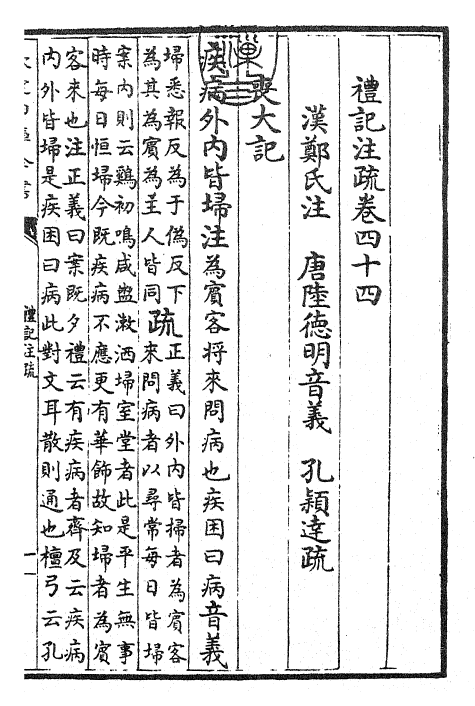 禮記注疏卷四十四
漢鄭氏注 唐陸德明音義 孔穎達疏
喪大記
疾病外内皆埽注為賔客將來問病也疾困曰病音義
埽悉報反為于偽反下
為其為賔為主人皆同
疏
正義曰外内皆掃者為賔客
來問病者以尋常每日皆埽
案内則云鷄初鳴咸盥漱洒埽室堂者此是平生無事
時每日恒埽今既疾病不應更有華飾故知埽者為賔
客來也注正義曰案既夕禮云有疾病者齊及云疾病
内外皆埽是疾困曰病此對文耳散則通也檀弓云孔
禮記注疏
一